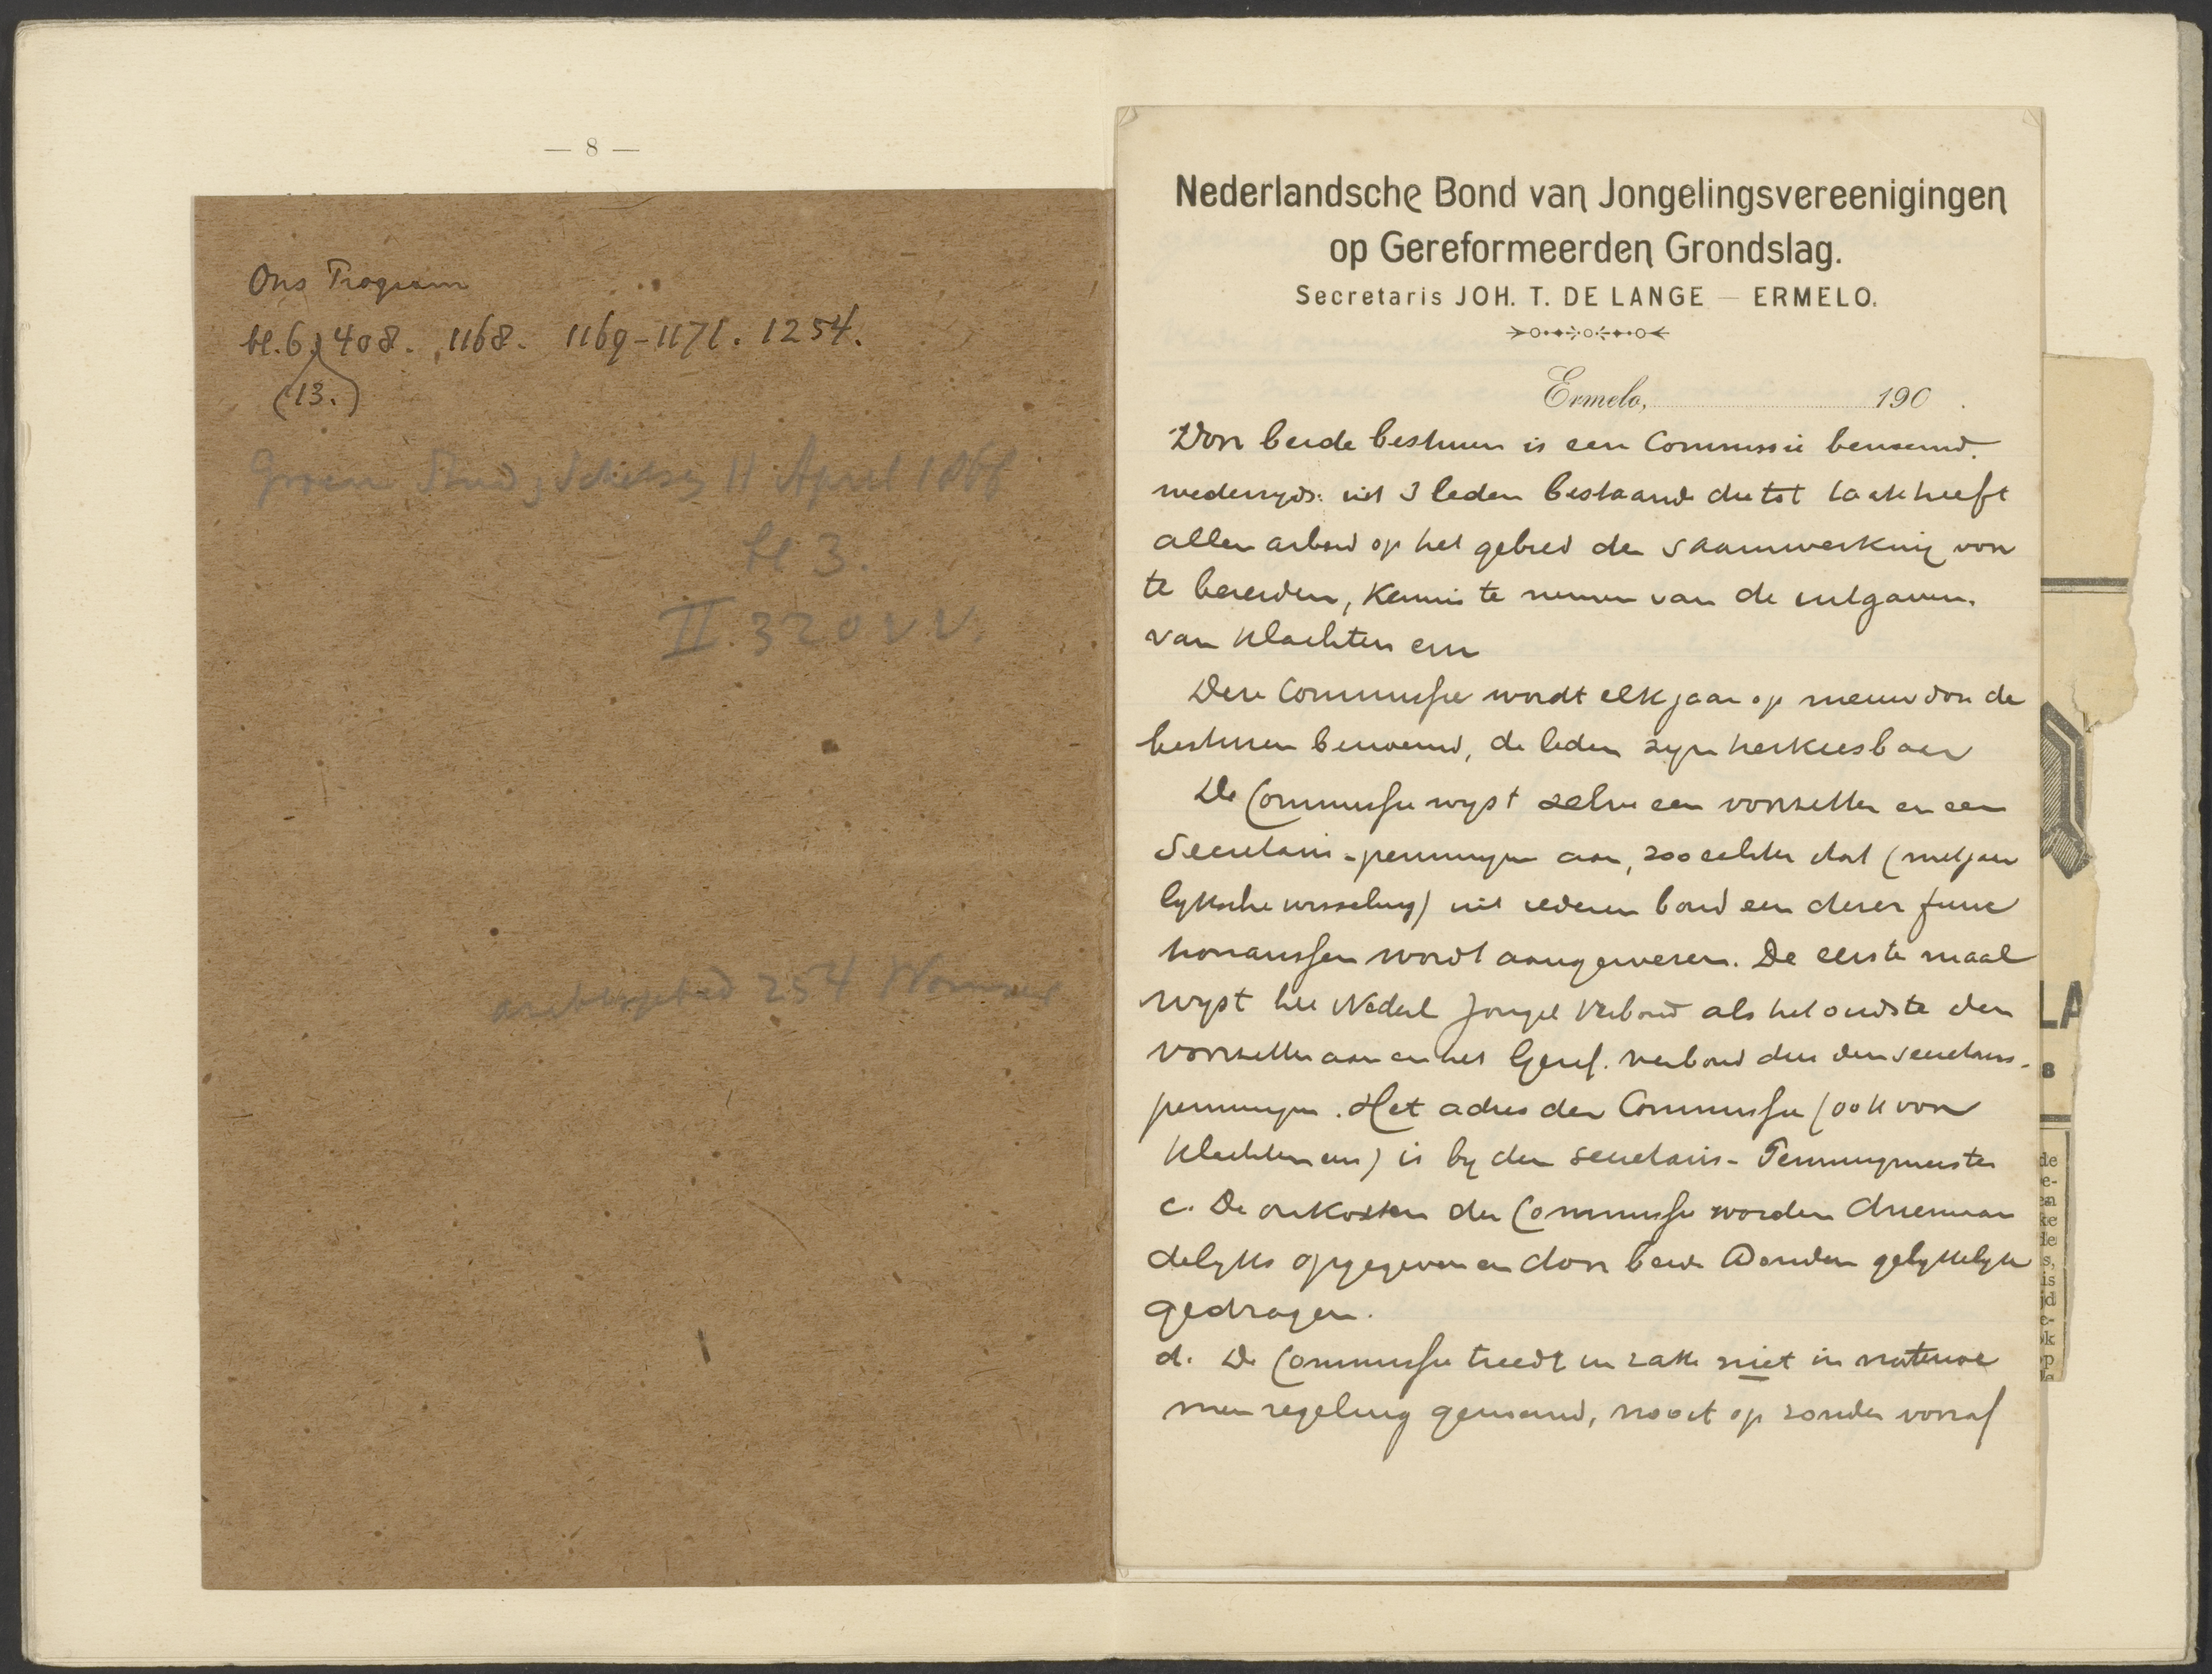 — 8 —
Ons Program
bl. 6. 408. 1168. 1169-1171. 1254.
(13.)
Groen April
bl 3.
II. 320 v.v.
254
Nederlandsche Bond van Jongelingsvereenigingen
op Gereformeerden Grondslag.
Secretaris JOH. T. DE LANGE — ERMELO.
Ermelo, 190 .
Door beide besturen is een Commissie benoemd.
wederzyds uit 3 leden bestaande die tot taak heeft
allen arbeid op het gebied der saamwerking voor
te bereiden, kennis te nemen van de uitgaven.
van klachten enz
Deze Commissie wordt elk jaar op nieuw door de
besturen benoemd, de leden zyn herkiesbaar
De Commissie wyst zelve een voorzitter en een
Secretaris-penningm aan, zoo echter dat (met jaar
lyksche wisseling) uit iederen bond een dezer func
tionarissen wordt aangewezen. De eerste maal
wyst het Nederl Jongel Verbond als het oudste den
voorzitter aan en het Geref. verbond dus den secretaris-
penningm. Het adres der Commissie (ook voor
klachten enz) is by den secretaris-Penningmeester
c. De onkosten der Commissie worden driemaan
delyks opgegeven en door beide Bonden gelykelyk
gedragen.
d. De Commissie treedt in zake niet in
men regeling genaamd, nooit op zonder vooraf
LA
B
de
e-
en
ke
de
s,
is
jd
e-
ok
op